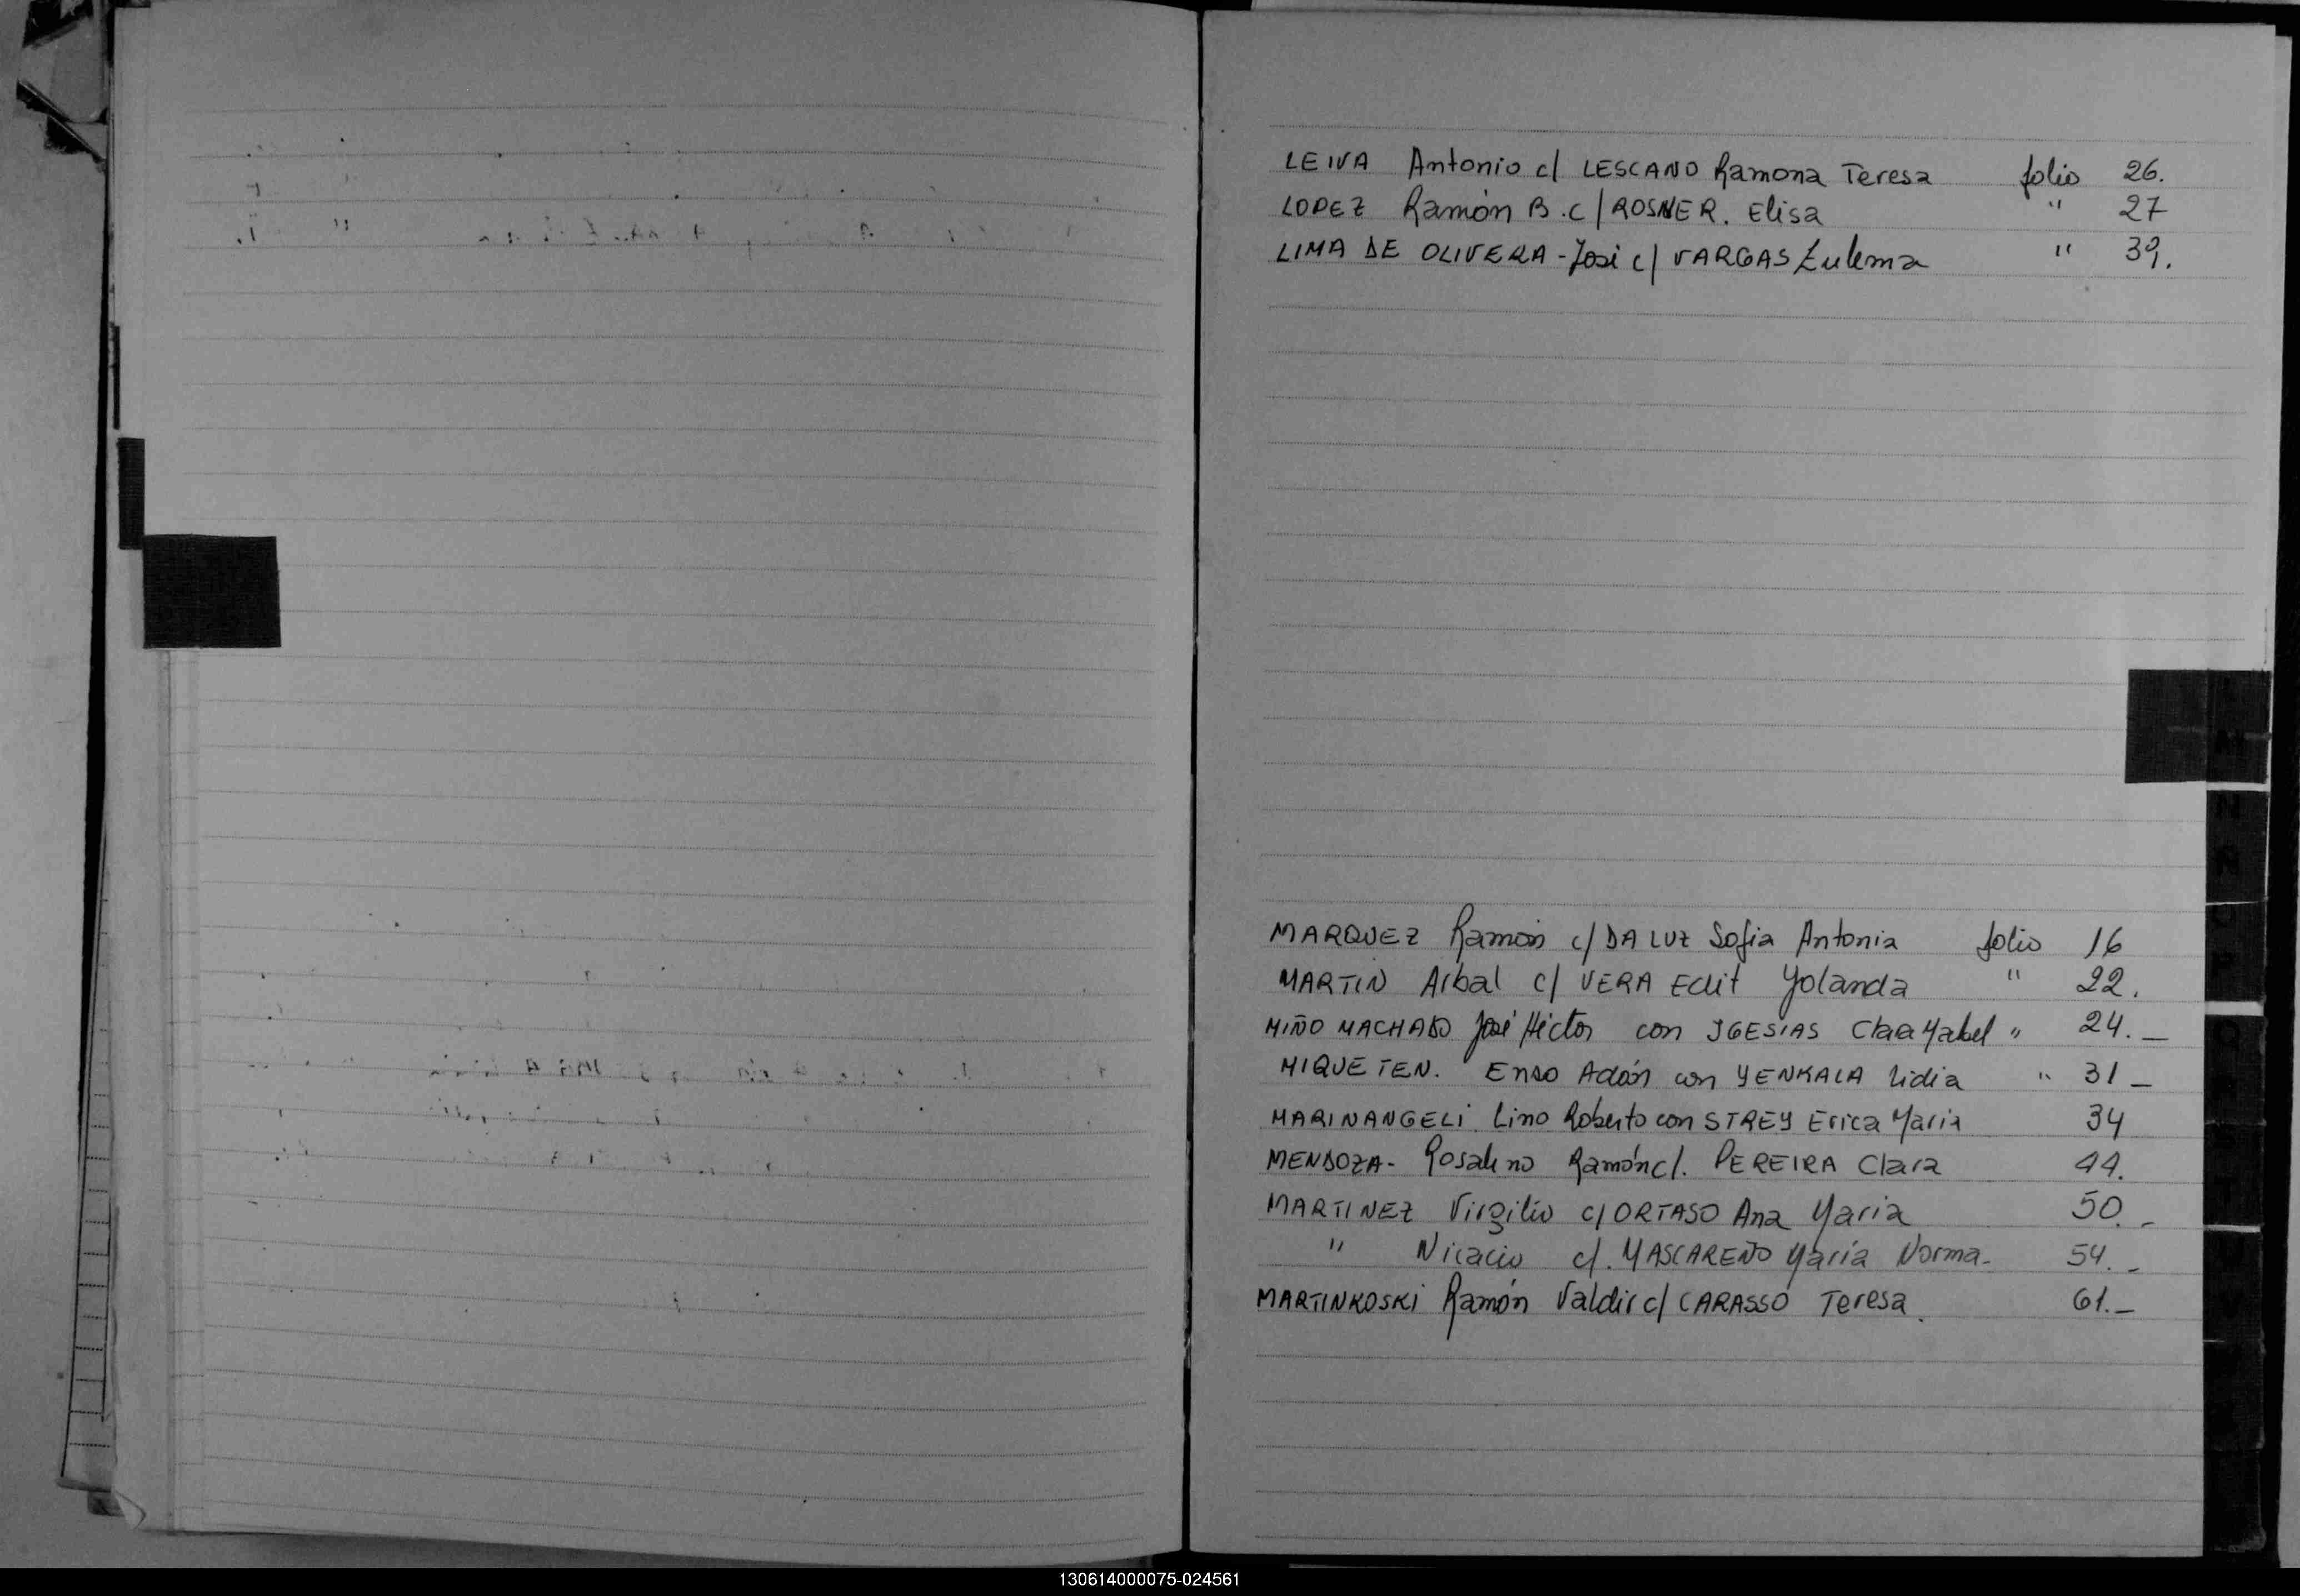 LEIVA Antonio c/ LESCANO Ramona Teresa folio 26.
LOPEZ Ramón B. c/ ROSNER. Elisa " 27
LIMA DE OLIVERA - José c/ VARGAS Zulema " 39.
MARQUEZ Ramón c/ DA LUZ Sofia Antonia folio 16
MARTIN Aibal c/ VERA Edit Yolanda " 22.
MIÑO MACHADO José Héctor con IGESIAS Claa Mabel " 24. _
MIQUETEN. Enso Adán con YENKALA Lidia " 31 _
MARINANGELI. Lino Roberto con STREY Erica Maria 34
MENDOZA - Rosalino Ramón c/. PEREIRA Clara 44.
MARTINEZ Virgilio c/ ORTASO Ana Maria 50. -
" Nicacio c/. MASCAREÑO María Norma - 54. -
MARTINKOSKI Ramón Valdir c/ CARASSO Teresa. 61. _
130614000075-024561